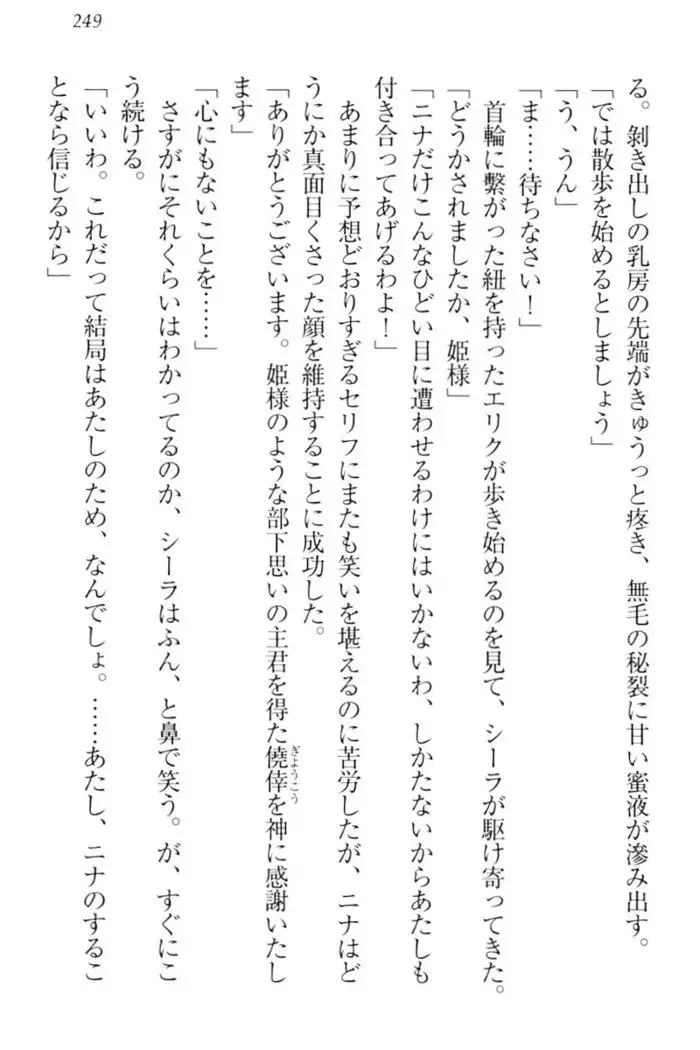 249
る。剝き出しの乳房の先端がきゅうっと疼き、無毛の秘裂に甘い蜜液が滲み出す。
「では散歩を始めるとしましょう」
「う、うん」
「ま……待ちなさい！」
首輪に繫がった紐を持ったエリクが歩き始めるのを見て、シーラが駆け寄ってきた。
「どうかされましたか、姫様」
「ニナだけこんなひどい目に遭わせるわけにはいかないわ、しかたないからあたしも
付き合ってあげるわよ！」
あまりに予想どおりすぎるセリフにまたも笑いを堪えるのに苦労したが、ニナはど
うにか真面目くさった顔を維持することに成功した。
「ありがとうございます。姫様のような部下思いの主君を得た僥倖を神に感謝いたし
ぎょうこう
ます」
「心にもないことを……」
さすがにそれくらいはわかってるのか、シーラはふん、と鼻で笑う。が、すぐにこ
う続ける。
「いいわ。これだって結局はあたしのため、なんでしょ。……あたし、ニナのするこ
となら信じるから」